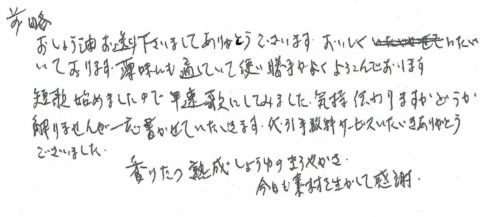 前略
おしょう油お送り下さいましてありがとうございます おいしくいただい
いております. 薄味にも適していて使い勝手がよくよろこんでおります
短歌始めましたので早速歌にしてみました. 気持伝わりますかどうか
解りませんが一応書かせていただきます. 代引手数料サービスいただきありがとう
ございました.
香りたつ熟成しょうゆのまろやかさ
今日も素材を生かして感謝.